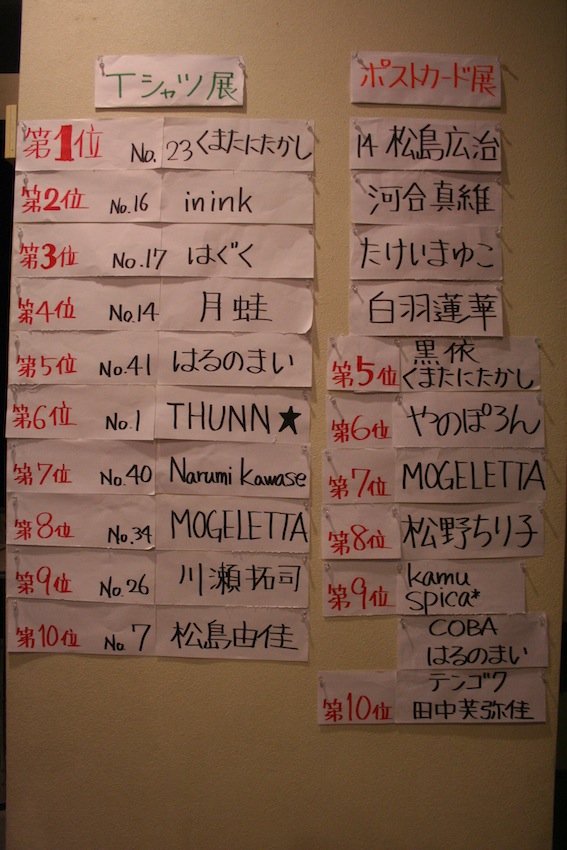 Tシャツ展
第1位 No. 23 くまたにたかし
第2位 No.16 inink
第3位 No.17 はぐく
第4位 No.14 月蛙
第5位 No.41 はるのまい
第6位 No.1 THUNN★
第7位 No.40 Narumi Kawase
第8位 No.34 MOGELETTA
第9位 No.26 川瀬拓司
第10位 No.7 松島由佳
ポストカード展
14 松島広治
河合真維
たけいまゆこ
白羽蓮華
第5位 黒依
くまたにたかし
第6位 やのぽろん
第7位 MOGELETTA
第8位 松野ちり子
第9位 kamu
spica*
COBA
はるのまい
第10位 テンゴク
田中芙弥佳